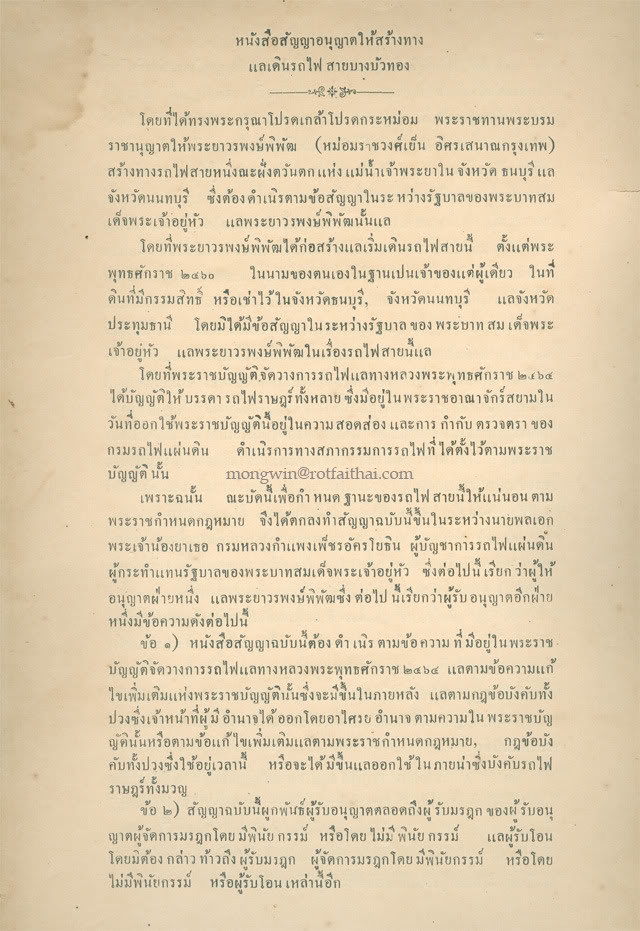 หนังสือสัญญาอนุญาตให้สร้างทาง
แลเดินรถไฟ สายบางบัวทอง
โดยที่ได้ทรงพระกรุณาโปรดเกล้าโปรดกระหม่อม พระราชทานพระบรม
ราชานุญาตให้พระยาวรพงษ์พิพัฒ (หม่อมราชวงศ์เย็น อิศรเสนาณกรุงเทพ)
สร้างทางรถไฟสายหนึ่งณะฝั่งตวันตกแห่งแม่น้ำเจ้าพระยาในจังหวัดธนบุรีแล
จังหวัดนนทบุรี ซึ่งต้องดำเนิรตามข้อสัญญาในระหว่างรัฐบาลของพระบาทสม
เด็จพระเจ้าอยู่หัว แลพระยาวรพงษ์พิพัฒนั้นแล
โดยที่พระยาวรพงษ์พิพัฒได้ก่อสร้างแลเริ่มเดินรถไฟสายนี้ ตั้งแต่พระ
พุทธศักราช ๒๔๖๐ ในนามของตนเองในฐานเปนเจ้าของแต่ผู้เดียว ในที่
ดินที่มีกรรมสิทธิ์ หรือเช่าไว้ในจังหวัดธนบุรี, จังหวัดนนทบุรี แลจังหวัด
ประทุมธานี โดยมิได้มีข้อสัญญาในระหว่างรัฐบาลของพระบาทสมเด็จพระ
เจ้าอยู่หัว แลพระยาวรพงษ์พิพัฒในเรื่องรถไฟสายนี้แล
โดยที่พระราชบัญญัติจัดวางการรถไฟแลทางหลวงพระพุทธศักราช ๒๔๖๔
ได้บัญญัติให้บรรดารถไฟราษฎร์ทั้งหลาย ซึ่งมีอยู่ในพระราชอาณาจักร์สยามใน
วันที่ออกใช้พระราชบัญญัตินี้อยู่ในความสอดส่องและการกำกับตรวจตราของ
กรมรถไฟแผ่นดิน ดำเนิรการทางสภากรรมการรถไฟที่ได้ตั้งไว้ตามพระราช
บัญญัตินั้น mongwin@rotfaithai.com
เพราะฉนั้น ณะบัดนี้เพื่อกำหนดฐานะของรถไฟสายนี้ให้แน่นอนตาม
พระราชกำหนดกฎหมาย จึงได้ตกลงทำสัญญาฉบับนี้ขึ้นในระหว่างนายพลเอก
พระเจ้าน้องยาเธอ กรมหลวงกำแพงเพ็ชรอัครโยธิน ผู้บัญชาการรถไฟแผ่นดิน
ผู้กระทำแทนรัฐบาลของพระบาทสมเด็จพระเจ้าอยู่หัว ซึ่งต่อไปนี้เรียกว่าผู้ให้
อนุญาตฝ่ายหนึ่ง แลพระยาวรพงษ์พิพัฒซึ่งต่อไปนี้เรียกว่าผู้รับอนุญาตอีกฝ่าย
หนึ่งมีข้อความดังต่อไปนี้
ข้อ ๑) หนังสือสัญญาฉบับนี้ต้องดำเนิรตามข้อความที่มีอยู่ในพระราช
บัญญัติจัดวางการรถไฟแลทางหลวงพระพุทธศักราช ๒๔๖๔ แลตามข้อความแก้
ไขเพิ่มเติมแห่งพระราชบัญญัตินั้นซึ่งจะมีขึ้นในภายหลัง แลตามกฎข้อบังคับทั้ง
ปวงซึ่งเจ้าหน้าที่ผู้มีอำนาจได้ออกโดยอาไศรยอำนาจตามความในพระราชบัญ
ญัตินั้นหรือตามข้อแก้ไขเพิ่มเติมแลตามพระราชกำหนดกฎหมาย, กฎข้อบัง
คับทั้งปวงซึ่งใช้อยู่เวลานี้ หรือจะได้มีขึ้นแลออกใช้ในภายน่าซึ่งบังคับรถไฟ
ราษฎร์ทั้งมวญ
ข้อ ๒) สัญญาฉบับนี้ผูกพันธ์ผู้รับอนุญาตตลอดถึงผู้รับมรฎกของผู้รับอนุ
ญาตผู้จัดการมรฎกโดยมีพินัยกรรม์ หรือโดยไม่มีพินัยกรรม์ แลผู้รับโอน
โดยมิต้องกล่าวท้าวถึงผู้รับมรฎก ผู้จัดการมรฎกโดยมีพินัยกรรม์ หรือโดย
ไม่มีพินัยกรรม์ หรือผู้รับโอนเหล่านี้อีก